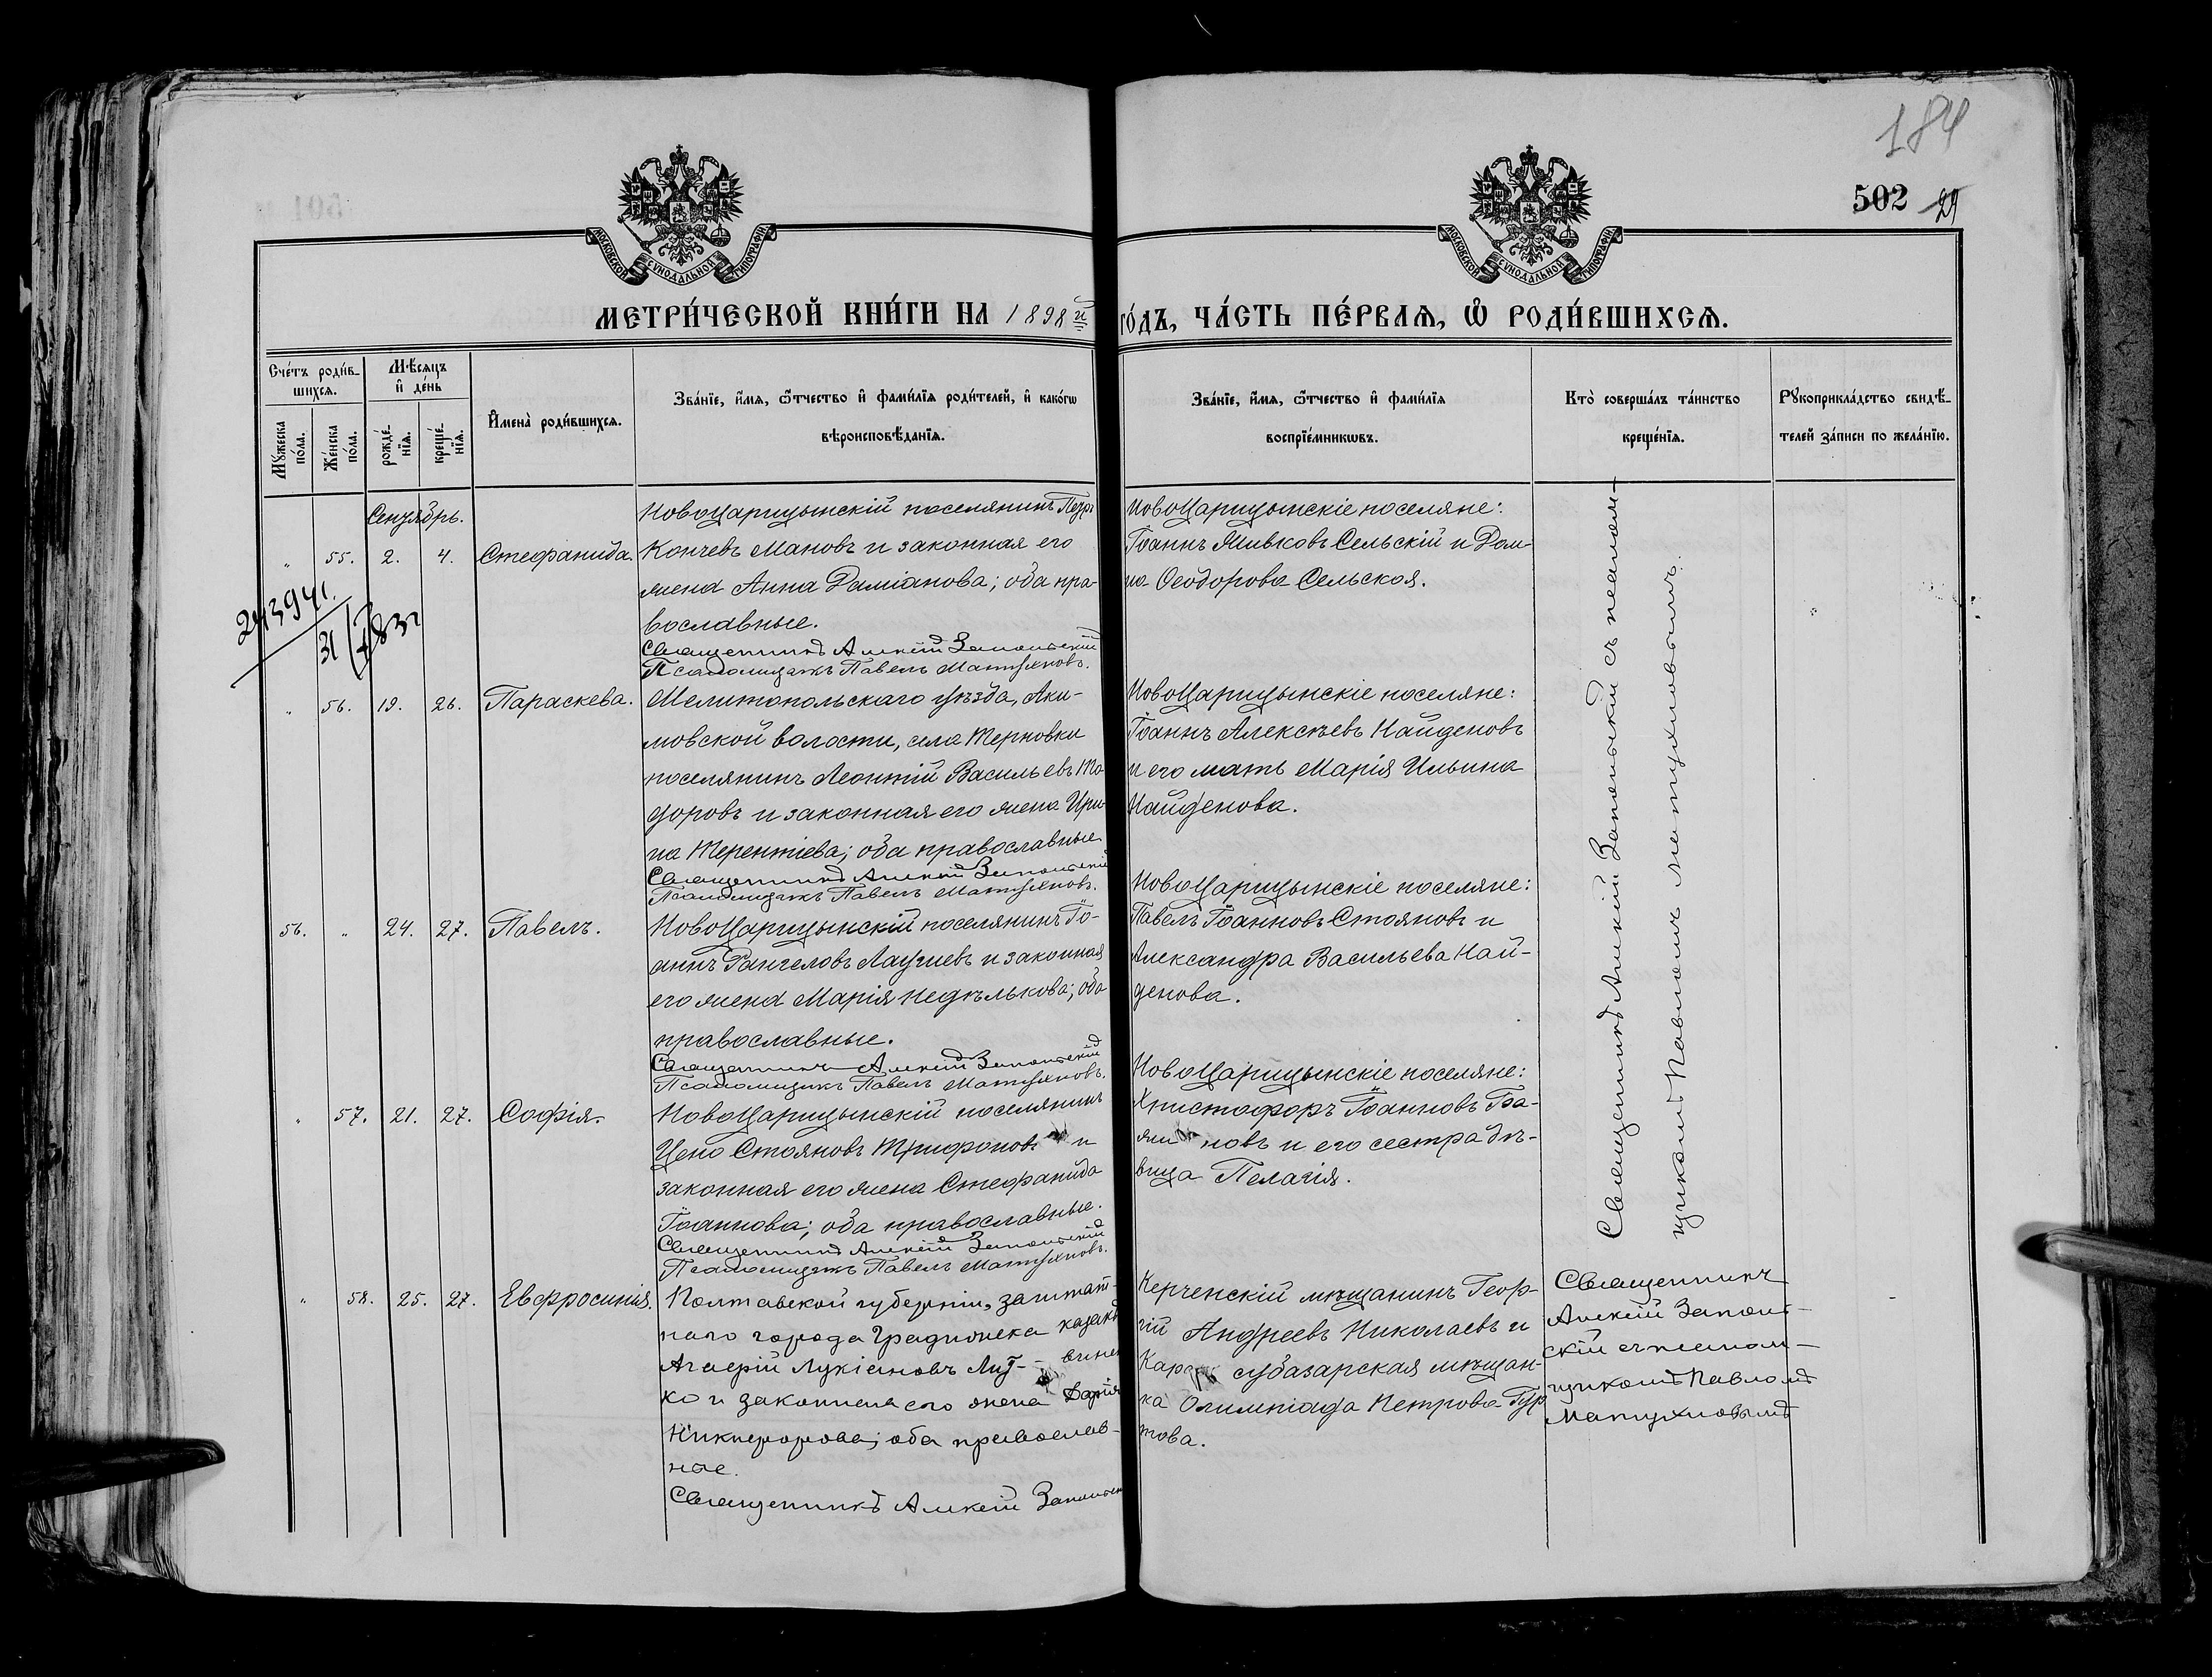 184
502 29
МОСКОВСКОЙ СУНОДАЛЬНОЙ ТИПОГРАФІИ
МОСКОВСКОЙ СУНОДАЛЬНОЙ ТИПОГРАФІИ
МЕТРИ́ЧЕСКОЙ КНИ́ГИ НА 1898й ГО́ДЪ, ЧА́СТЬ ПЕ́РВАѦ, Ѽ РОДИ́ВШИХСѦ.
Сче́тъ роди́в-
шихсѧ.
Мꙋ́жеска по́ла.
Же́нска по́ла.
Мѣ́сѧцъ и҆ де́нь
рожде́-
нїѧ.
креще́-
нїѧ.
И҆мена̀ роди́вшихсѧ.
Зва́нїе, и҆́мѧ, ѻ҆́тчество и҆ фами́лїѧ роди́телей, и҆ како́гѡ
вѣроисповѣ́данїѧ.
Зва́нїе, и҆́мѧ, ѻ҆́тчество и҆ фами́лїѧ
воспрїе́мникѡвъ.
Кто̀ соверша́лъ та́инство
креще́нїѧ.
Рꙋкоприкла́дство свидѣ́-
телей за́писи по жела́нїю.
Сентябрь.
" 55. 2. 4. Стефанида.
Новоцарицынскій поселянинъ Петръ
Кончевъ Мановъ и законная его
жена Анна Даміанова; оба пра-
вославные.
Священникъ Алексій Запольскій
Псаломщикъ Павелъ Матухновъ.
Новоцарицынскіе поселяне:
Іоаннъ Живковъ Сельскій и Дом-
на Ѳеодорова Сельская.
243941.
" 56. 19. 26. Параскева.
Мелитопольскаго уѣзда, Аки-
мовской волости, села Терновки
поселянинъ Леонтій Васильевъ То-
доровъ и законная его жена Ири-
на Терентіева; оба православные
Священникъ Алексій Запольскій
Псаломщикъ Павелъ Матухновъ.
Новоцарицынскіе поселяне:
Іоаннъ Алексѣевъ Найденовъ
и его мать Марія Ильина
Найденова.
56. " 24. 27. Павелъ.
Новоцарицынскій поселянинъ Іо-
аннъ Рангеловъ и законная
его жена Марія Недѣлькова; оба
православные.
Священникъ Алексій Запольскій
Псаломщикъ Павелъ Матухновъ.
Новоцарицынскіе поселяне:
Павелъ Іоанновъ Стояновъ и
Александра Васильева Най-
денова.
" 57. 21. 27. Софія.
Новоцарицынскій поселянинъ
Цено Стояновъ Трифоновъ и
законная его жена Стефанида
Іоаннова; оба православные.
Священникъ Алексій Запольскій
Псаломщикъ Павелъ Матухновъ.
Новоцарицынскіе поселяне:
Христофоръ Іоанновъ
новъ и его сестра дѣ-
вица Пелагія.
Священникъ Алексій Запольскій съ псалом-
щикомъ Павломъ Матухновымъ.
" 58. 25. 27. Евфросинія.
Полтавской губерніи, заштат-
наго города Градижска казакъ
Лукіановъ Лит- винен
ко и законная его жена Дарія
Никифорова; оба православ-
ные.
Священникъ Алексій Запольскій
Керченскій мѣщанинъ Геор-
гій Андреевъ Николаевъ и
Карасубазарская мѣщан-
ка Олимпіада Петрова Гур
това.
Священникъ
Алексій Заполь-
скій съ псалом-
щикомъ Павломъ
Матухновымъ